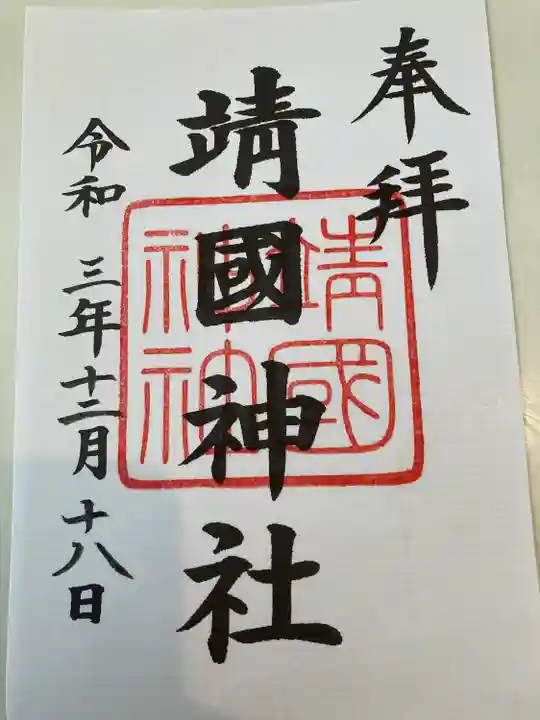 奉拝
靖國神社
靖國神社
令和 三年十二月十八日